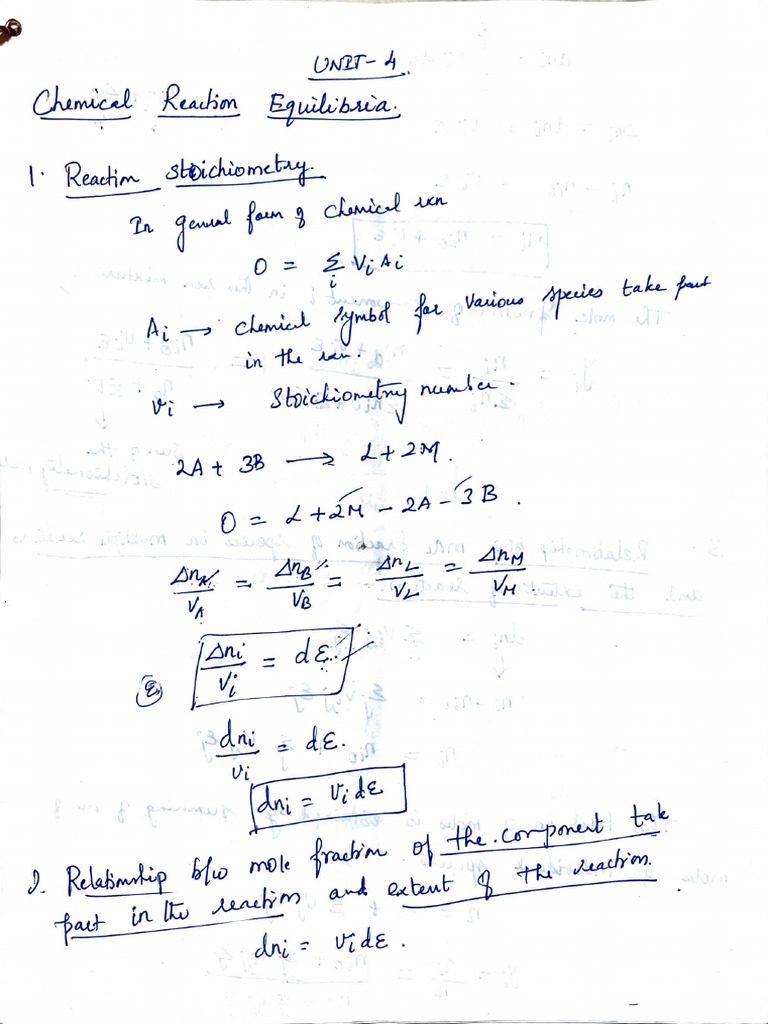 UNIT-4
Chemical Reaction Equilibria.
1. Reaction Stoichiometry.
In general form of chemical rxn
0 = Σ_i Vi Ai
Ai → Chemical symbol for various species take part
in the rxn.
νi → Stoichiometry number.
2A + 3B → L + 2M.
0 = L + 2M - 2A - 3B.
ΔnA/VA = ΔnB/VB = ΔnL/VL = ΔnM/VM
Δni/Vi = dε
ε
dni/νi = dε.
dni = Vi dε
2. Relationship b/w mole fraction of the component take
part in the reaction and extent of the reaction.
dni = Vi dε.